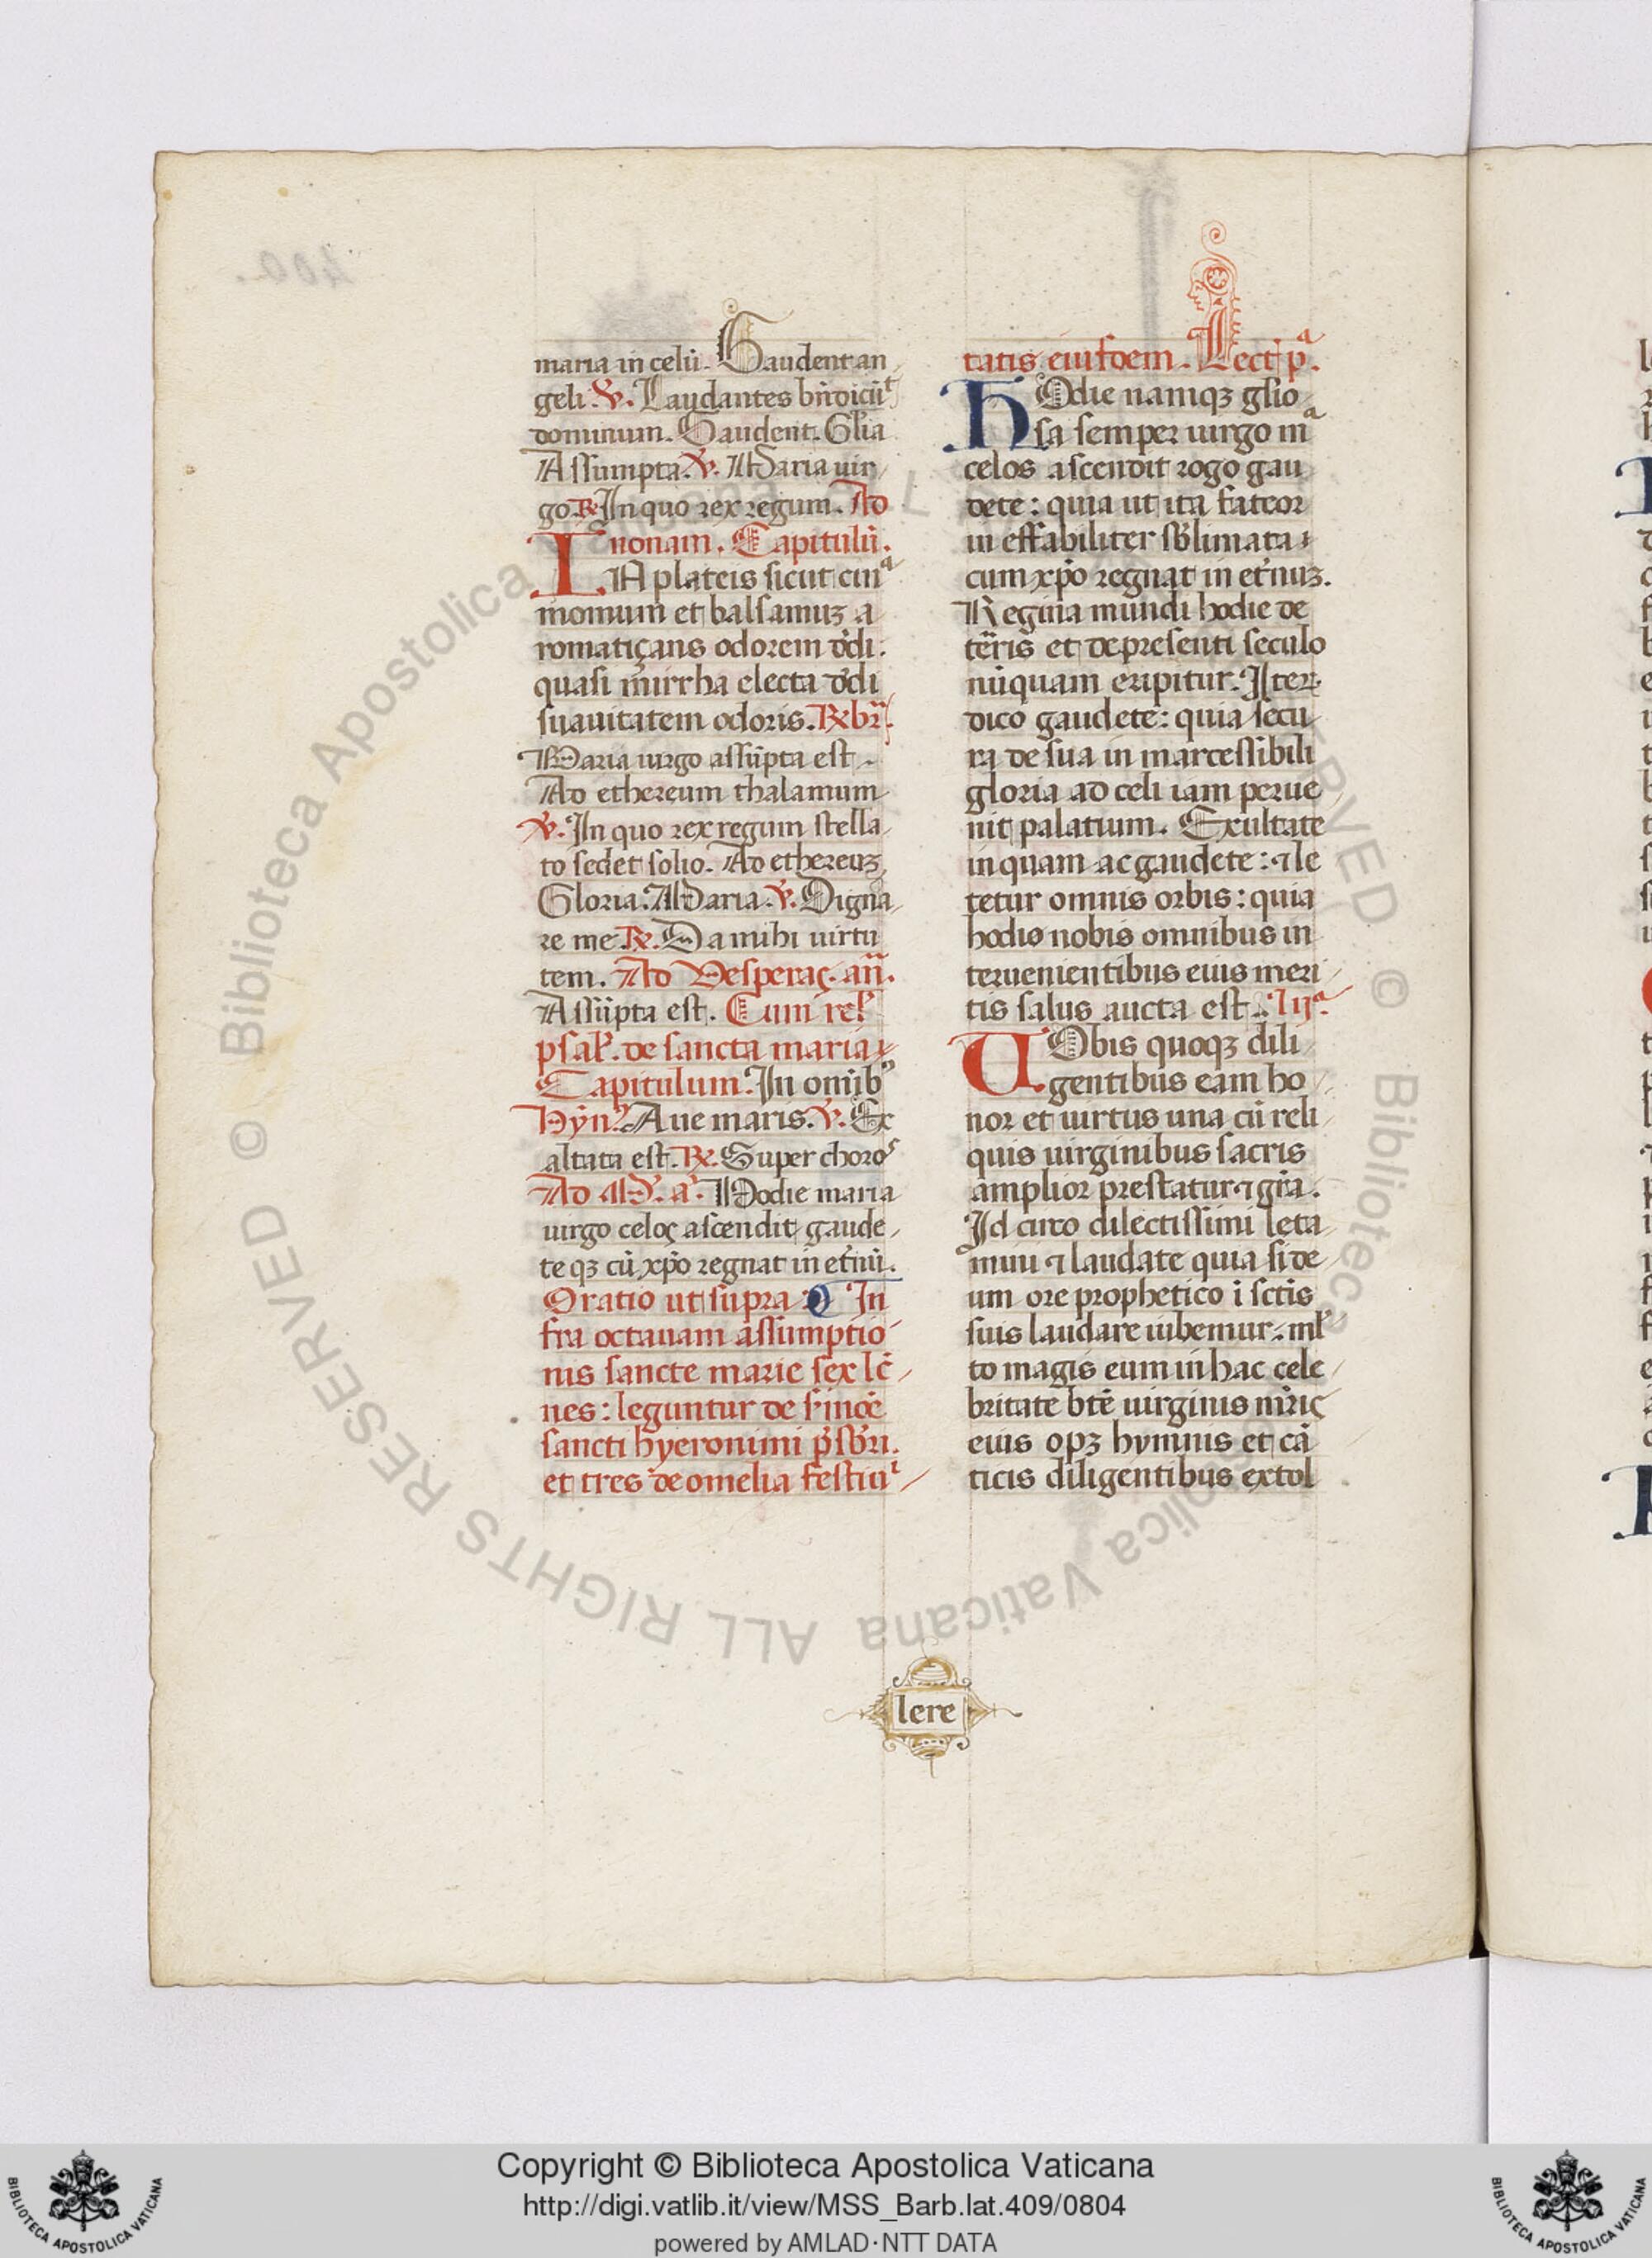 maria in celū. Gaudent an
geli. V. Laudantes bn̄dicūt
dominum. Gaudent. Gl̄ia
Assumpta. V. Maria uir
go. R. In quo rex regum. Ad
nonam. Capitulū.
IN plateis sicut cina
momum et balsamuz a
romatiçans odorem d̄di:
quasi mirrha electa d̄di
suauitatem odoris. R. br̄.
Maria uirgo assūpta est
Ad ethereum thalamum
V. In quo rex regum stella
to sedet solio. Ad ethereuz
Gloria. Maria. V. Digna
re me. R. Da mihi uirtu
tem. Ad Vesperaç. an̄.
Assūpta est. Cum rel̄
psal̄. de sancta maria
Capitulum. In om̄ib9
Hȳn9. Aue maris. V. Ex
altata est. R. Super choros
Ad M. a. Hodie maria
uirgo celoç ascendit gaude
te qz cū xp̄o regnat in et̄nū.
Oratio ut supra. In
fra octauam assumptio
nis sancte marie sex lc̄
nes: leguntur de s̄mōe
sancti hyeronimi p̄sb̄ri.
et tres de omelia festiui
tatis eiusdem. Lect p̄a.
HOdie namqz gl̄io
sa semper uirgo m̄a
celos ascendit rogo gau
dete: quia ut ita fateor
in effabiliter sb̄limata
cum xp̄o regnat in et̄nuz.
Regina mundi hodie de
tēris et depresenti seculo
nūquam eripitur. Iter
dico gaudete: quia secu
ra de sua in marcessibili
gloria ad celi iam perue
nit palatium. Exultate
inquam ac gaudete: ⁊ le
tetur omnis orbis: quia
hodie nobis omnibus in
teruenientibus eius meri
tis salus aucta est. IIa.
UObis quoqz dili
gentibus eam ho
nor et uirtus una cū reli
quis uirginibus sacris
amplior prestatur ⁊ gr̄a.
Id circo dilectissimi leta
mini ⁊ laudate quia si de
um ore prophetico i sct̄is
suis laudare iubemur. ml̄
to magis eum in hac cele
britate bt̄ē uirginis m̄riç
eius opz hymnis et cā
ticis diligentibus extol
lere
Copyright © Biblioteca Apostolica Vaticana
http://digi.vatlib.it/view/MSS_Barb.lat.409/0804
powered by AMLAD·NTT DATA
BIBLIOTECA APOSTOLICA VATICANA
BIBLIOTECA APOSTOLICA VATICANA
© Biblioteca Apostolica Vaticana ALL RIGHTS RESERVED